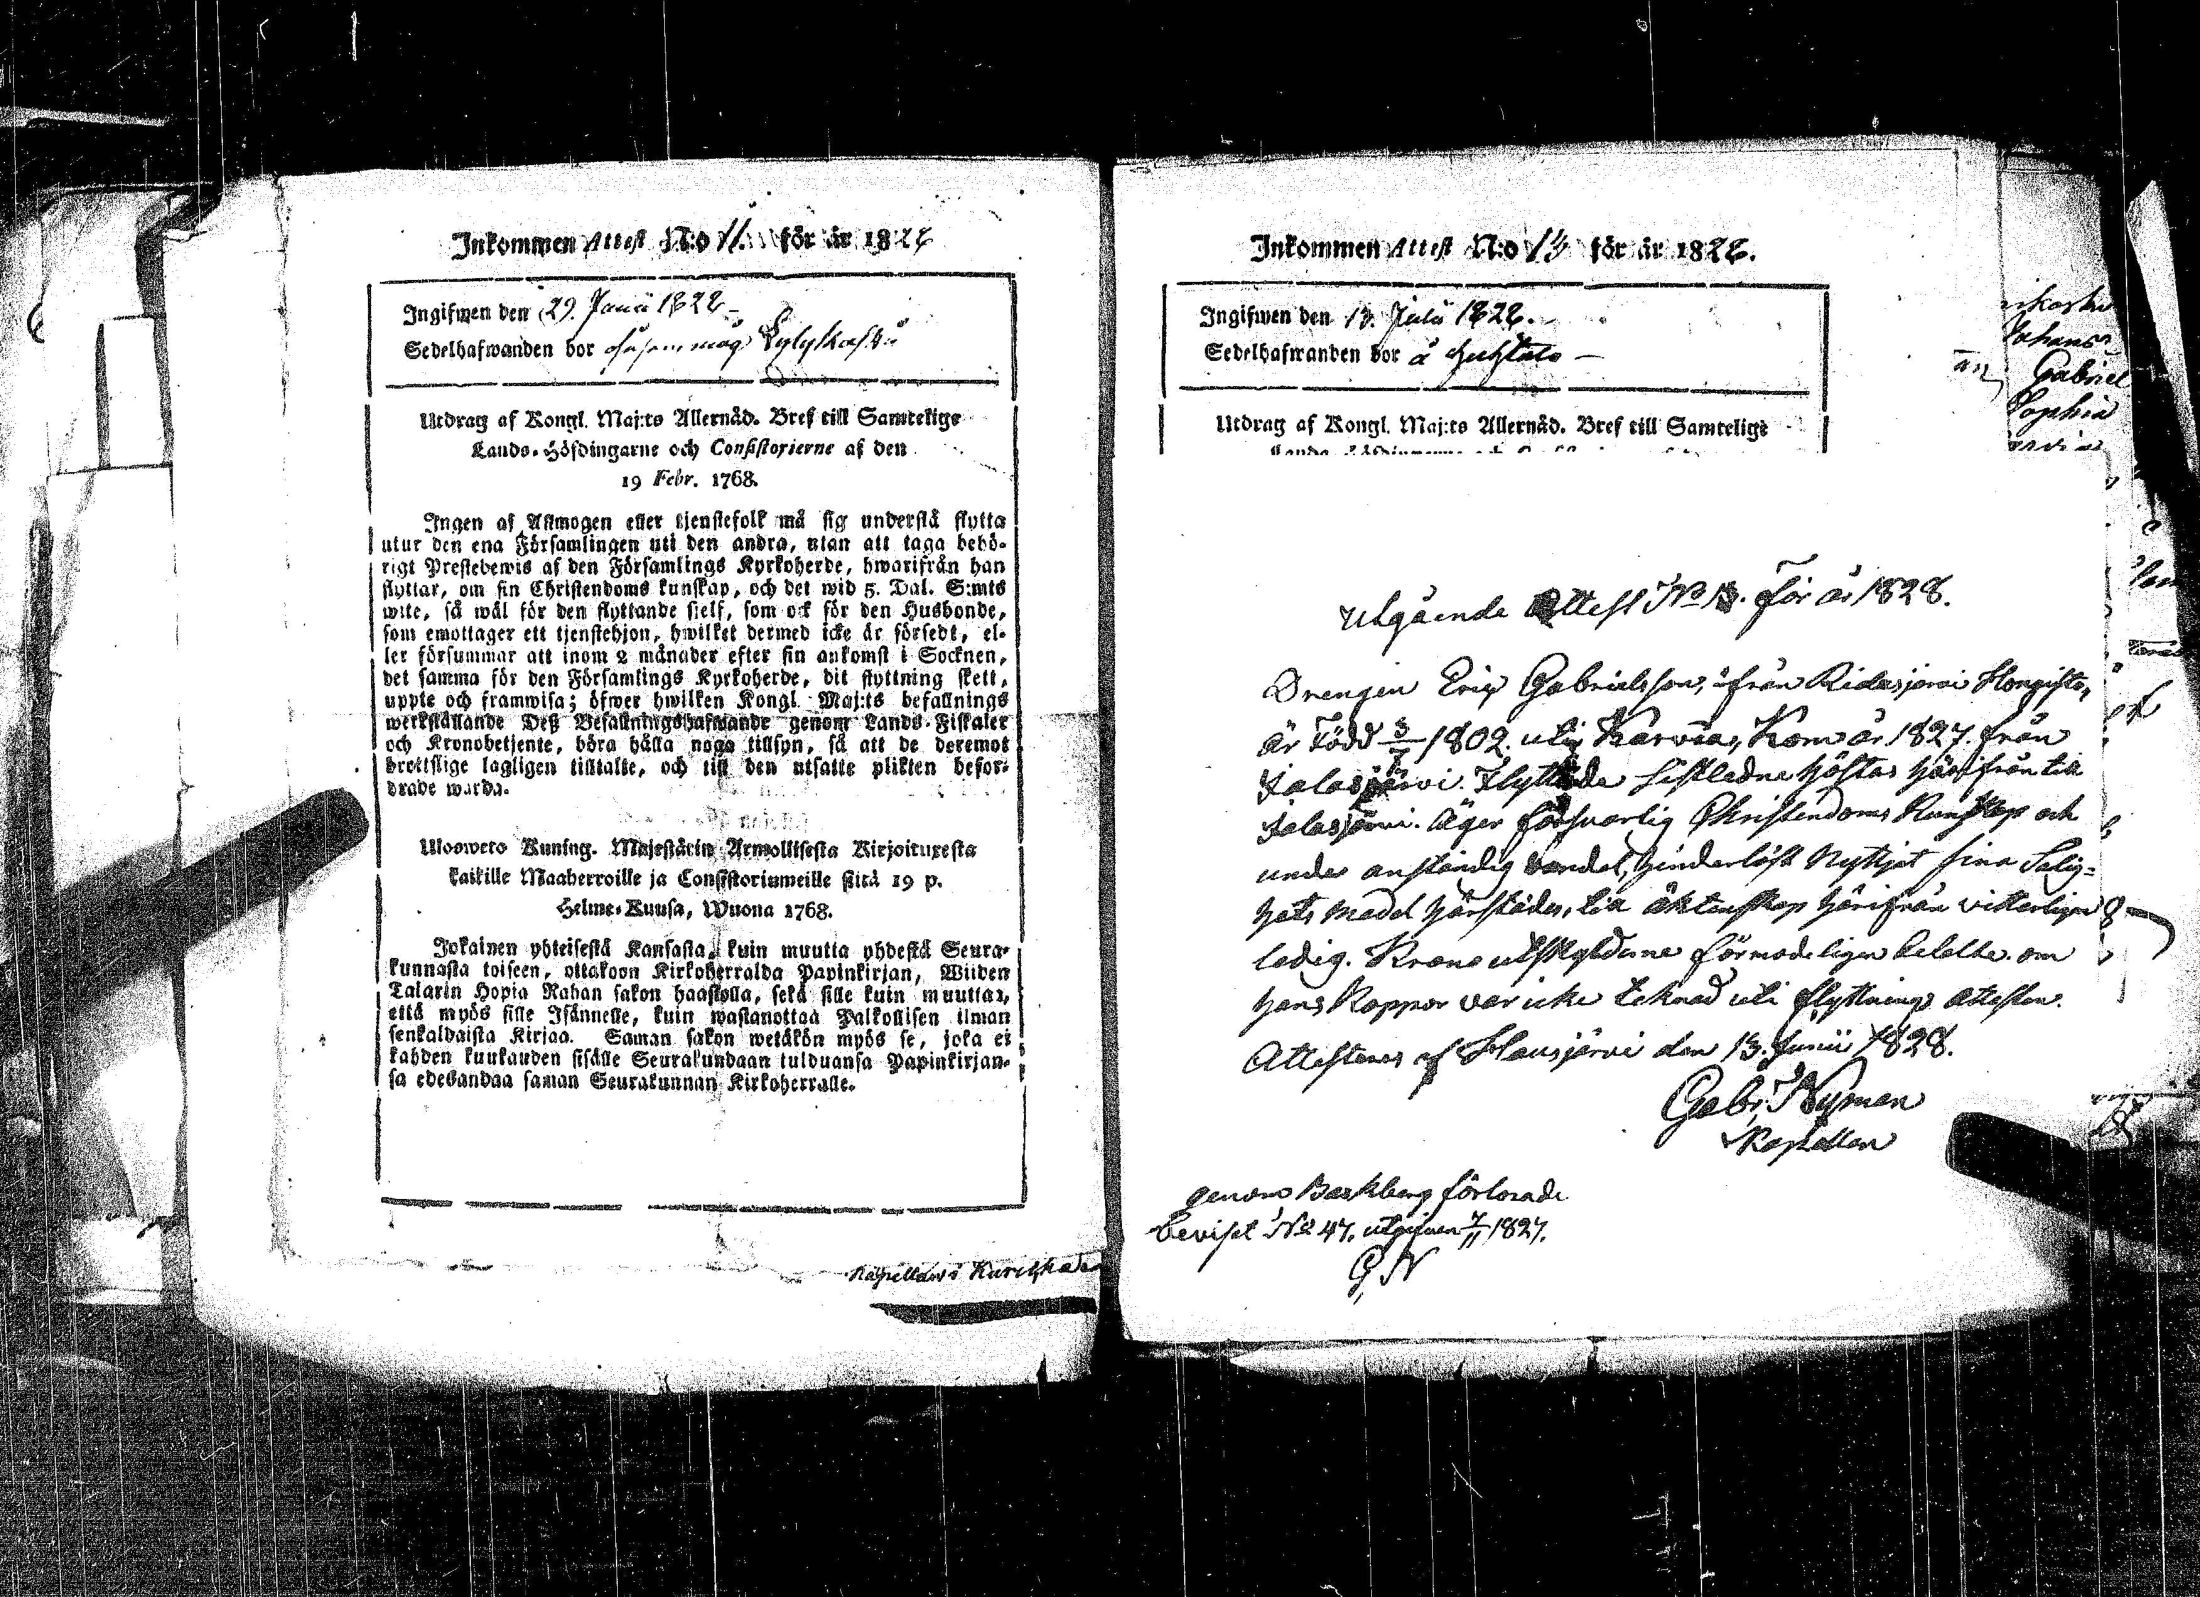 Inkommen Attest N:o 11. för år 1828
Ingifwen den 29. Junii 1828 -
Sedelhafwanden bor
Utdrag af Kongl. Maj:ts Allernåd. Bref till Samtelige
Lands-Höfdingarne och Consistorierne af den
19 Febr. 1768.
Ingen af Allmogen eller tjenstefolk må sig understå flytta
utur den ena Församlingen uti den andra, utan att taga behö-
rigt Prestebewis af den Församlings Kyrkoherde, hwarifrån han
flyttar, om sin Christendoms kunskap, och det wid 5. Dal. S:mts
wite, så wäl för den flyttande sielf, som ock för den Husbonde,
som emottager ett tjenstehjon, hwilket dermed icke är försedt, el-
ler försummar att inom 2 månader efter sin ankomst i Socknen,
det samma för den Församlings Kyrkoherde, dit flyttning skett,
uppte och framwisa; öfwer hwilken Kongl. Maj:ts befallnings
werkställande Deß Befallningshafwande genom Lands-Fiskaler
och Kronobetjente, böra hålla noga tillsyn, så att de deremot
brottslige lagligen tilltalte, och till den utsatte plikten befor-
drade warda.
Ulosweto Kuning. Majestätin Armollisesta Kirjoituxesta
kaikille Maaherroille ja Consistoriumeille siitä 19 p.
Helme-Kuusa, Wuona 1768.
Jokainen yhteisestä Kansasta, kuin muutta yhdestä Seura-
kunnasta toiseen, ottakoon Kirkoherralda Papinkirjan, Wiiden
Talarin Hopia Rahan sakon haastolla, sekä sille kuin muuttaa,
että myös sille Isännelle, kuin wastanottaa Palkollisen ilman
senkaldaista Kirjaa. Saman sakon wetäkön myös se, joka ei
kahden kuukauden sisälle Seurakundaan tulduansa Papinkirjan-
sa edesandaa saman Seurakunnan Kirkoherralle.
Kapellans
Inkommen Attest N:o 13 för år 1828.
Ingifwen den 13. Julii 1828.
Sedelhafwanden bor å
Utdrag af Kongl. Maj:ts Allernåd. Bref till Samtelige
Utgående Attest No 13. för år 1828.
Drengen Eric Gabrielsson, ifrån Ridasjärvi Hongisto,
är Född 3/7 1802. uti Karvia, Kom år 1827. från
Jalasjärvi. Flyttade sistledne höstas härifrån till
Jalasjärvi. Äger försvarlig Christendoms Kunskap och
under anständig vandel, hinderlöst Nyttjat sina Salig-
hets medel härstädes, till äktenskap härifrån vitterligen
ledig. Krono utskylderne förmodeligen betalte. om
hans Koppor var icke teknad uti flyttnings attesten.
Attesteras af Hausjärvi den 13. Junii 1828.
Gabr. Nyman
Kapellan
genom Backberg förlorade
beviset No 47. utgifven 7/11 1827.
G, N
Johans
Gabriel
Sophia